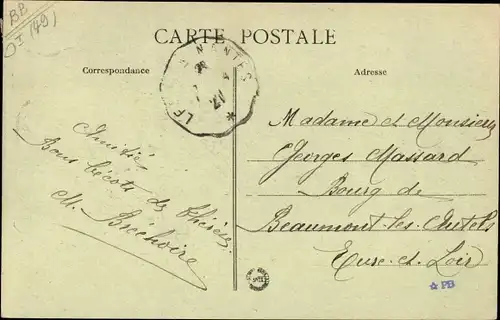 BB
CARTE POSTALE
Correspondance
Adresse
NANTES
21
Amitié
Bons bécots de Thérèse
M.
Madame et Monsieur
Georges Massard
Bourg de
Beaumont-les-Autels
Eure-et-Loir
PB